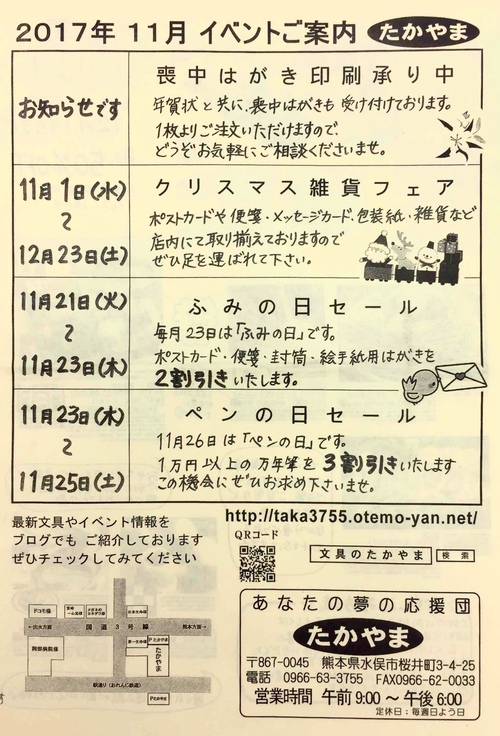 2017年 11月 イベントご案内 たかやま
お知らせです
喪中はがき印刷承り中
年賀状と共に、喪中はがきも受け付けております。
1枚よりご注文いただけますので、
どうぞお気軽にご相談くださいませ。
11月1日(水)
〜
12月23日(土)
クリスマス雑貨フェア
ポストカードや便箋・メッセージカード、包装紙・雑貨など
店内にて取り揃えておりますので
ぜひ足を運ばれて下さい。
11月21日(火)
〜
11月23日(木)
ふみの日セール
毎月23日は「ふみの日」です。
ポストカード・便箋・封筒・絵手紙用はがきを
2割引きいたします。
11月23日(木)
〜
11月25日(土)
ペンの日セール
11月26日は「ペンの日」です。
1万円以上の万年筆を3割引きいたします
この機会にぜひお求め下さいませ。
最新文具やイベント情報を
ブログでも ご紹介しております
ぜひチェックしてみてください
http://taka3755.otemo-yan.net/
QRコード
文具のたかやま 検索
ドコモ様
←出水方面 国道3号線 熊本方面→
胸部病院様
Pたかやま
たかやま
駅通り(おれんじ鉄道)
Pたかやま
あなたの夢の応援団
たかやま
〒867-0045 熊本県水俣市桜井町3-4-25
電話 0966-63-3755 FAX0966-62-0033
営業時間 午前9:00〜午後6:00
定休日:毎週日よう日